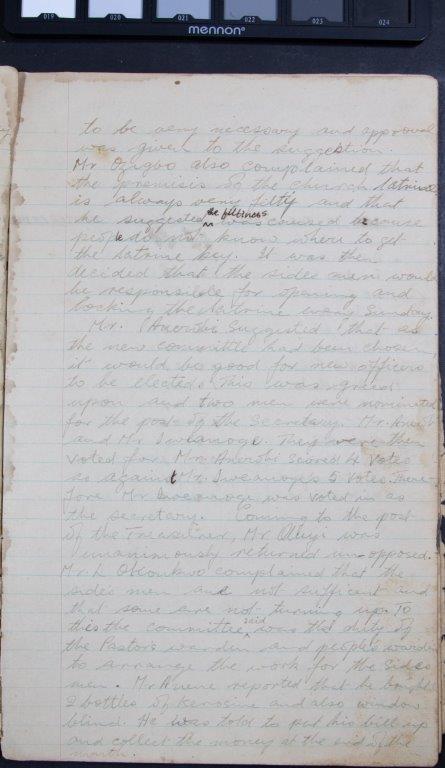 019 020 021 022 023 024
mennon
to be very necessary and approval
was given to the suggestion.
Mr Ozigbo also complained that
the premisis of the church latrine
is always very filty and that
he suggested the filtiness was coused because
people do not know where to get
the latrine key. It was then
decided that the sides men would
be responsible for opening and
locking the latrine every Sunday.
Mr. Anerobi Suggested that as
the new committee had been chosen
it would be good for new officers
to be elected. This was agreed
upon and two men were nominated
for the post of the Secretary. Mr.
and Mr They were then
voted for. Mr. Anerobi scored 4 votes
as against Mr. 5 votes. There-
fore Mr was voted in as
the secretary. Coming to the post
of the Treasurer, Mr was
unanimously returned un-opposed.
Mr. L Okonkwo complained that the
sides men are not sufficant and
that some are not turning up. To
this the committee said was the duty of
the Pastor's warden and people's warden
to arrange the work for the sides
men. Mr Anene reported that he bought
2 bottles of kerosine and also window
blind. He was told to put his bill up
and collect the money at the end of the
month.